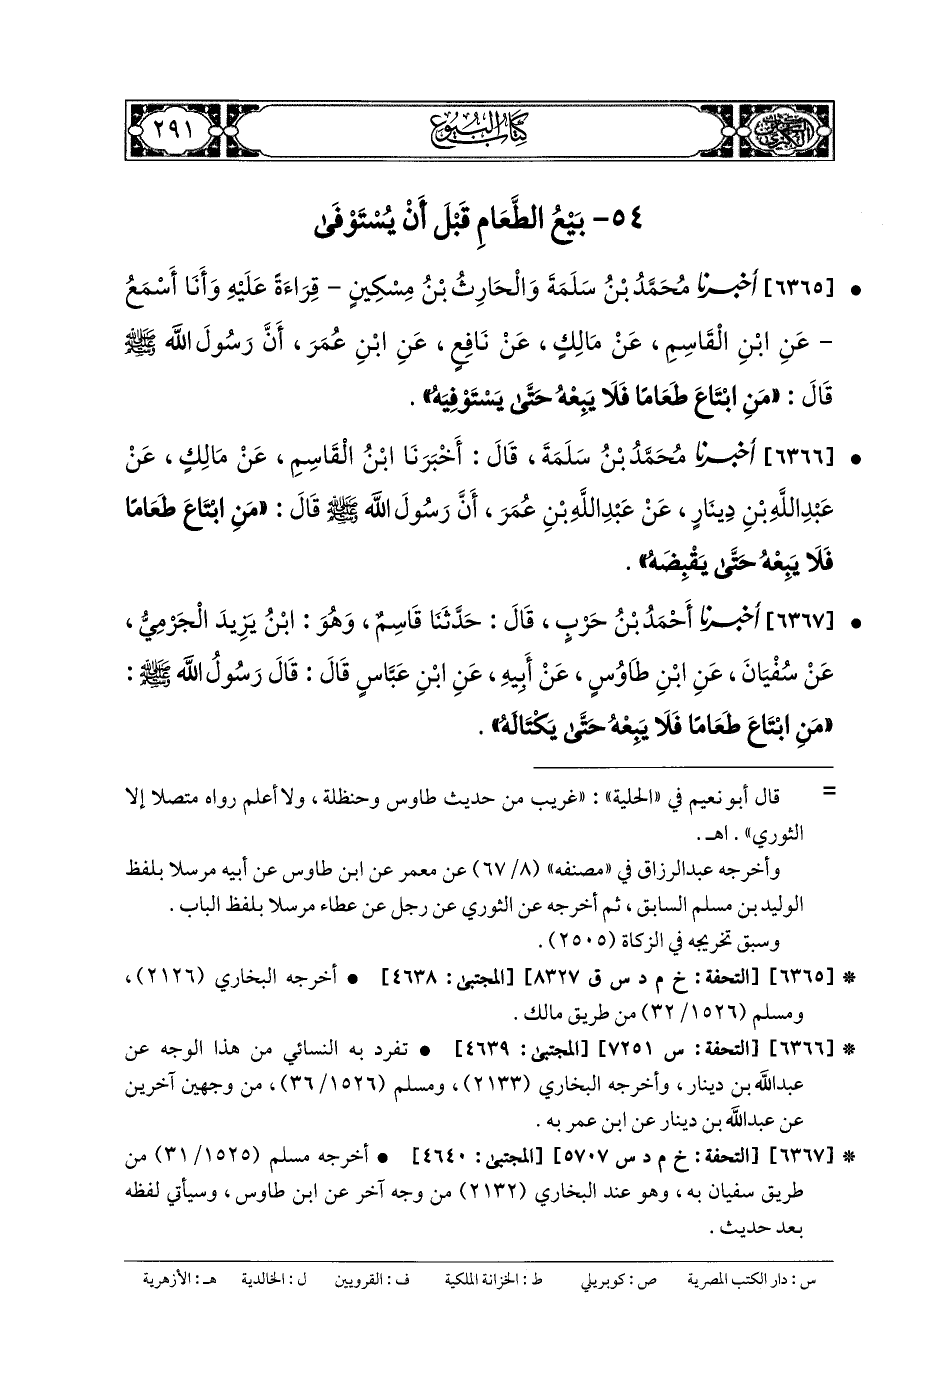 كتاب البيوع ٢٩١
٥٤- بَيْعُ الطَّعَامِ قَبْلَ أَنْ يُسْتَوْفَىٰ
• [٦٣٦٥] أخبرنا مُحَمَّدُ بْنُ سَلَمَةَ وَالْحَارِثُ بْنُ مِسْكِينٍ - قِرَاءَةً عَلَيْهِ وَأَنَا أَسْمَعُ
- عَنِ ابْنِ الْقَاسِمِ، عَنْ مَالِكٍ، عَنْ نَافِعٍ، عَنِ ابْنِ عُمَرَ، أَنَّ رَسُولَ اللَّه ﷺ
قَالَ: «مَنِ ابْتَاعَ طَعَامًا فَلَا يَبِعْهُ حَتَّىٰ يَسْتَوْفِيَهُ».
• [٦٣٦٦] أخبرنا مُحَمَّدُ بْنُ سَلَمَةَ، قَالَ: أَخْبَرَنَا ابْنُ الْقَاسِمِ، عَنْ مَالِكٍ، عَنْ
عَبْدِ اللَّهِ بْنِ دِينَارٍ، عَنْ عَبْدِ اللَّهِ بْنِ عُمَرَ، أَنَّ رَسُولَ اللَّه ﷺ قَالَ: «مَنِ ابْتَاعَ طَعَامًا
فَلَا يَبِعْهُ حَتَّىٰ يَقْبِضَهُ».
• [٦٣٦٧] أخبرنا أَحْمَدُ بْنُ حَرْبٍ، قَالَ: حَدَّثَنَا قَاسِمٌ، وَهُوَ: ابْنُ يَزِيدَ الْجَرْمِيُّ،
عَنْ سُفْيَانَ، عَنِ ابْنِ طَاوُسٍ، عَنْ أَبِيهِ، عَنِ ابْنِ عَبَّاسٍ قَالَ: قَالَ رَسُولُ اللَّه ﷺ:
«مَنِ ابْتَاعَ طَعَامًا فَلَا يَبِعْهُ حَتَّىٰ يَكْتَالَهُ».
= قال أبو نعيم في «الحلية»: «غريب من حديث طاوس وحنظلة، ولا أعلم رواه متصلا إلا
الثوري». اهـ.
وأخرجه عبدالرزاق في «مصنفه» (٨/ ٦٧) عن معمر عن ابن طاوس عن أبيه مرسلا بلفظ
الوليد بن مسلم السابق، ثم أخرجه عن الثوري عن رجل عن عطاء مرسلا بلفظ الباب.
وسبق تخريجه في الزكاة (٢٥٠٥).
* [٦٣٦٥] [التحفة: خ م د س ق ٨٣٢٧] [المجتبىٰ: ٤٦٣٨] • أخرجه البخاري (٢١٢٦)،
ومسلم (١٥٢٦/ ٣٢) من طريق مالك.
* [٦٣٦٦] [التحفة: س ٧٢٥١] [المجتبىٰ: ٤٦٣٩] • تفرد به النسائي من هذا الوجه عن
عبداللَّه بن دينار، وأخرجه البخاري (٢١٣٣)، ومسلم (١٥٢٦/ ٣٦)، من وجهين آخرين
عن عبداللَّه بن دينار عن ابن عمر به.
* [٦٣٦٧] [التحفة: خ م د س ٥٧٠٧] [المجتبىٰ: ٤٦٤٠] • أخرجه مسلم (١٥٢٥/ ٣١) من
طريق سفيان به، وهو عند البخاري (٢١٣٢) من وجه آخر عن ابن طاوس، وسيأتي لفظه
بعد حديث.
س: دار الكتب المصرية ص: كوبريلي ط: الخزانة الملكية ف: القرويين ل: الخالدية هـ: الأزهرية